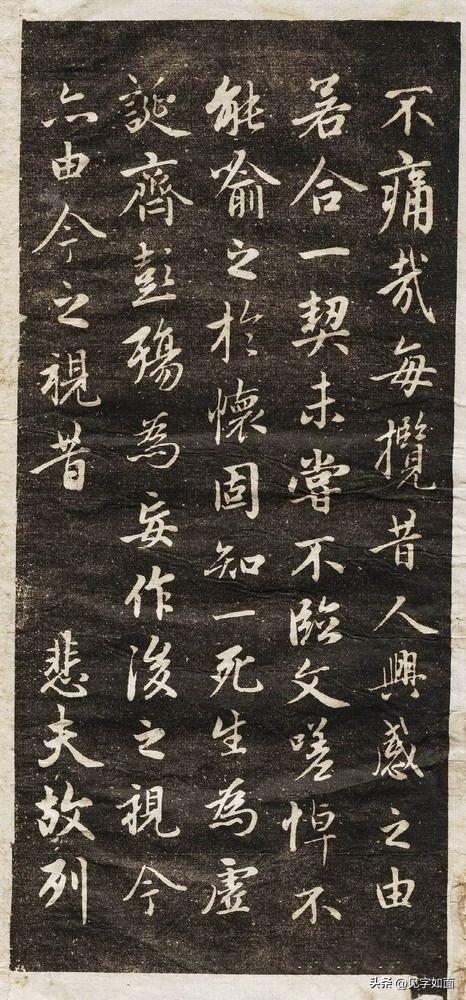 不痛哉每攬昔人興感之由
若合一契未嘗不臨文嗟悼不
能喻之於懷固知一死生為虛
誕齊彭殤為妄作後之視今
亦由今之視昔 悲夫故列
头条 @见字如面